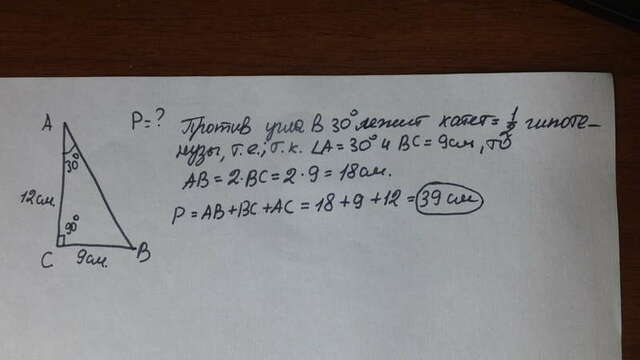 A
12см
30°
C
90°
9см.
B
P=?
Против угла в 30° лежит катет = 1/2 гипоте-
нузы, т.е., т.к. ∠A=30° и BC=9см, то
AB=2·BC=2·9=18см.
P=AB+BC+AC=18+9+12=39см